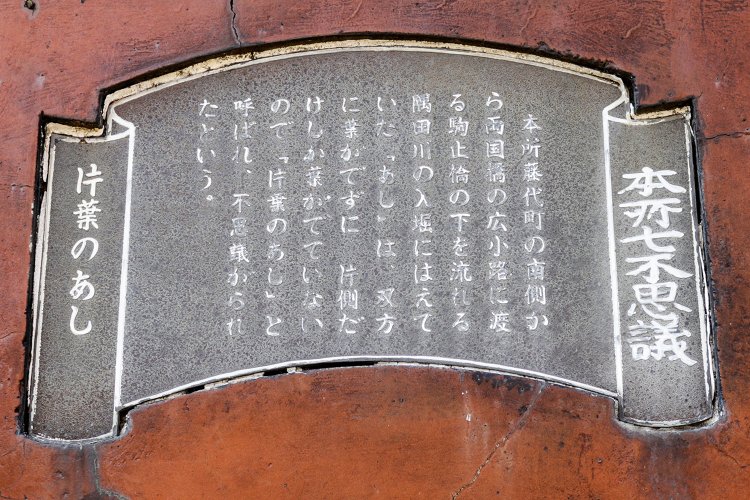 本所七不思議
本所藤代町の南側か
ら両国橋の広小路に渡
る駒止橋の下を流れる
隅田川の入堀にはえて
いた「あし」は、双方
に葉がでずに 片側だ
けしか葉がでていない
ので「片葉のあし」と
呼ばれ、不思議がられ
たという。
片葉のあし